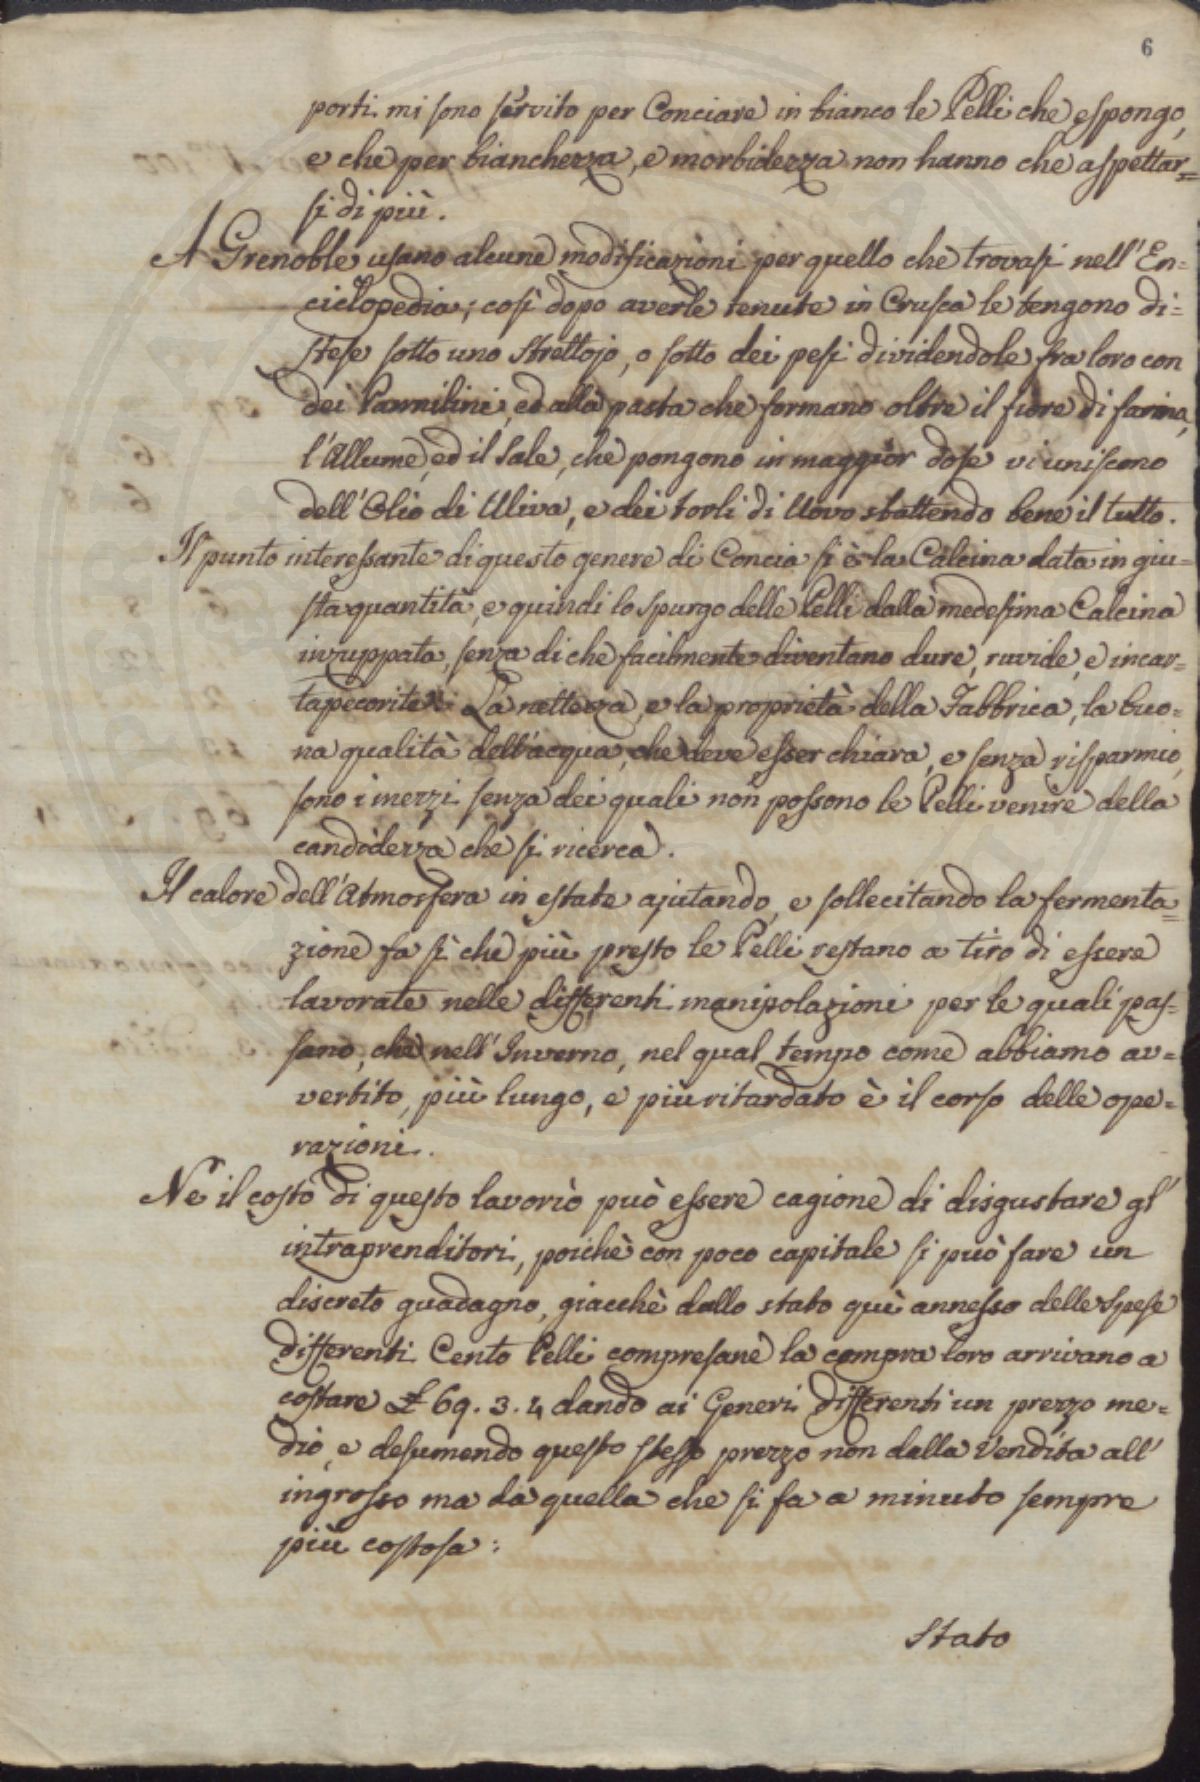 6
porti mi sono servito per Conciare in bianco le Pelli che espongo,
e che per bianchezza, e morbidezza non hanno che aspettar=
si di più.
A Grenoble usano alcune modificazioni per quello che trovasi nell'En=
ciclopedia; così dopo averle tenute in Crusca le tengono di=
stese sotto uno strettojo, o sotto dei pesi dividendole fra loro con
dei Pannilini, ed alla pasta che formano oltre il fiore di farina,
l'Allume, ed il Sale, che pongono in maggior dose vi uniscono
dell'Olio di Uliva, e dei torli di Uovo sbattendo bene il tutto.
Il punto interessante di questo genere di Concia si è la Calcina data in giu=
sta quantità, e quindi lo spurgo delle Pelli dalla medesima Calcina
inzuppata, senza di che facilmente diventano dure, ruvide, e incar=
tapecorite: La nettezza, e la proprietà della Fabbrica, la buo=
na qualità dell'acqua, che deve esser chiara, e senza risparmio,
sono i mezzi senza dei quali non possono le Pelli venire della
candidezza che si ricerca.
Il calore dell'Atmosfera in estate ajutando, e sollecitando la fermenta=
zione fa sì che più presto le Pelli restano a tiro di essere
lavorate nelle differenti manipolazioni per le quali pas=
sano, che nell'Inverno, nel qual tempo come abbiamo av=
vertito, più lungo, e più ritardato è il corso delle ope=
razioni.
Nè il costo di questo lavorio può essere cagione di disgustare gl'
intraprenditori, poichè con poco capitale si può fare un
discreto guadagno, giacchè dallo stato quì annesso delle Spese
differenti Cento Pelli compresane la compra loro arrivano a
costare £ 69. 3. 4 dando ai Generi differenti un prezzo me=
dio, e desumendo questo stesso prezzo non dalla Vendita all'
ingrosso ma da quella che si fa a minuto sempre
più costosa:
Stato